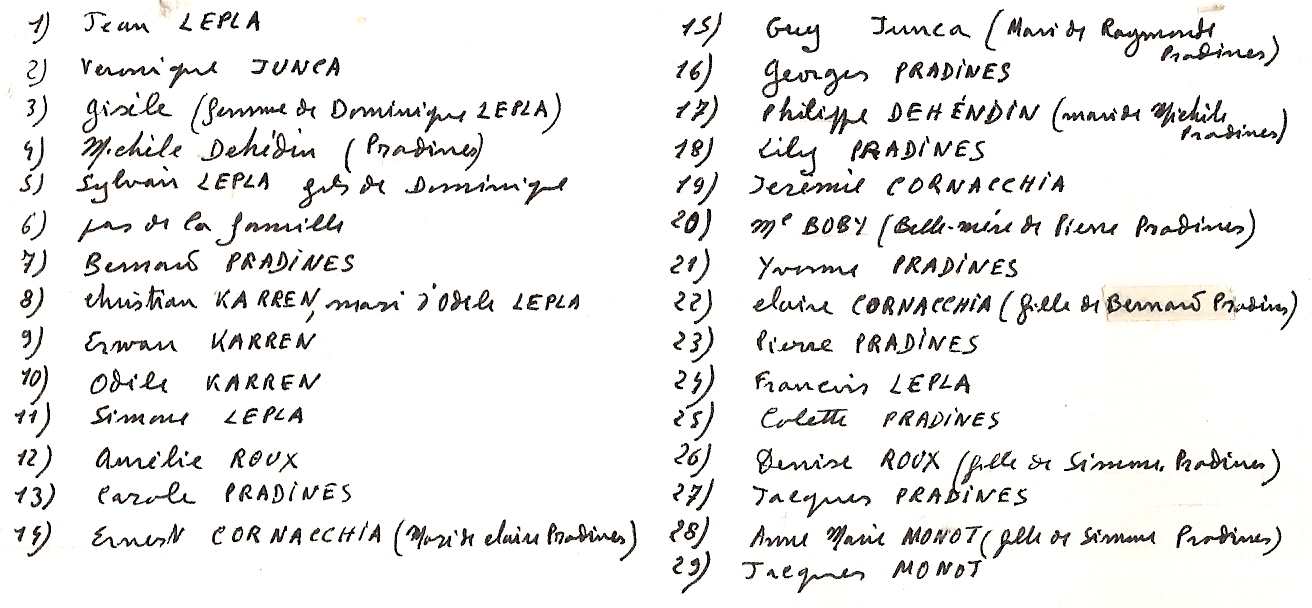 1) Jean LEPLA
2) Véronique JUNCA
3) Gisèle (femme de Dominique LEPLA)
4) Michèle Dehédin (Pradines)
5) Sylvain LEPLA fils de Dominique
6) pas de la famille
7) Bernard PRADINES
8) Christian KARREN, mari d'Odile LEPLA
9) Erwan KARREN
10) Odile KARREN
11) Simone LEPLA
12) Aurélie ROUX
13) Carole PRADINES
14) Ernest CORNACCHIA (Mari de Claire Pradines)
15) Guy Junca (Mari de Raymonde
Pradines)
16) Georges PRADINES
17) Philippe DEHÉNDIN (mari de Michèle
Pradines)
18) Lily PRADINES
19) Jérémie CORNACCHIA
20) Me BOBY (Belle-mère de Pierre Pradines)
21) Yvonne PRADINES
22) Claire CORNACCHIA (fille de Bernard Pradines)
23) Pierre PRADINES
24) Francis LEPLA
25) Colette PRADINES
26) Denise ROUX (fille de Simone Pradines)
27) Jacques PRADINES
28) Anne Marie MONOT (fille de Simone Pradines)
29) Jacques MONOT